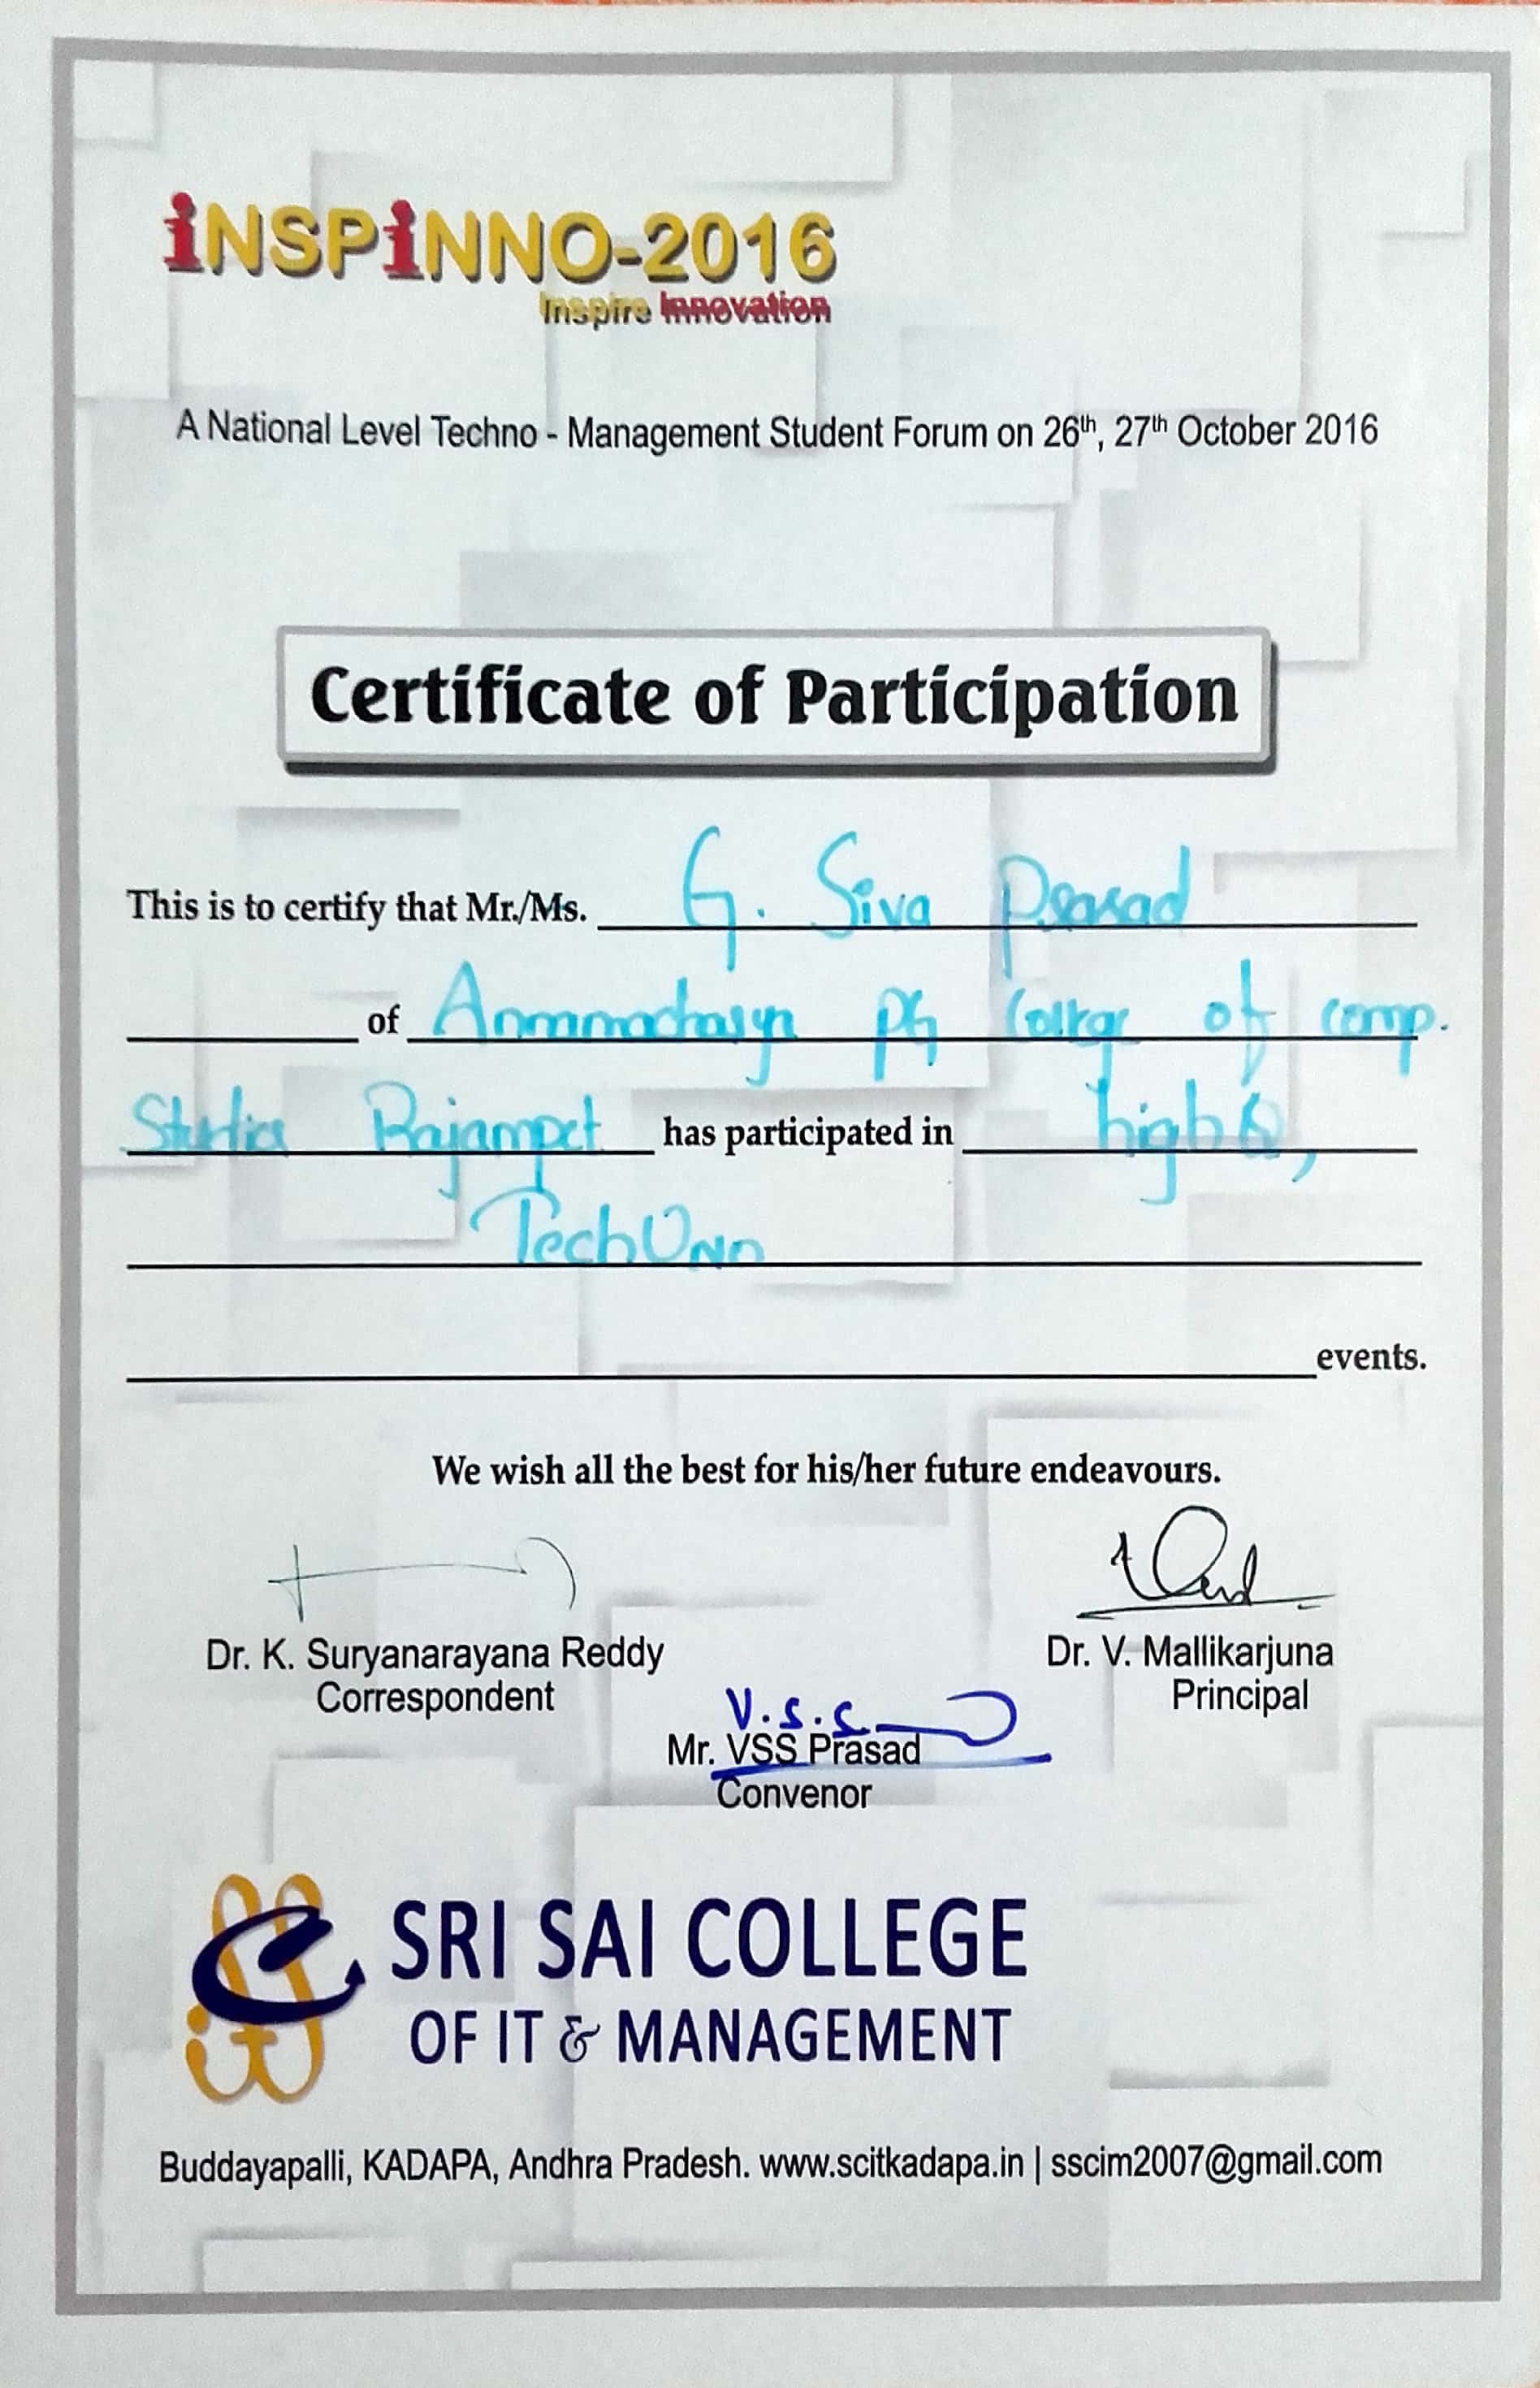 iNSPiNNO-2016
Inspire Innovation
A National Level Techno - Management Student Forum on 26th, 27th October 2016
Certificate of Participation
This is to certify that Mr./Ms. G. Siva Prasad
of Annamacharya PG College of comp.
Studies Rajampet has participated in
TechUno
events.
We wish all the best for his/her future endeavours.
Dr. K. Suryanarayana Reddy
Correspondent
Dr. V. Mallikarjuna
Principal
V.S.S
Mr. VSS Prasad
Convenor
SRI SAI COLLEGE
OF IT & MANAGEMENT
Buddayapalli, KADAPA, Andhra Pradesh. www.scitkadapa.in | sscim2007@gmail.com